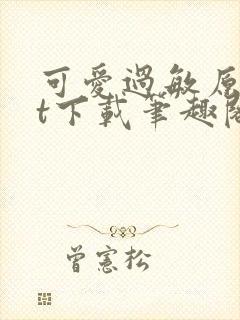 可愛過敏原
t下載筆趣閣
曾憲松